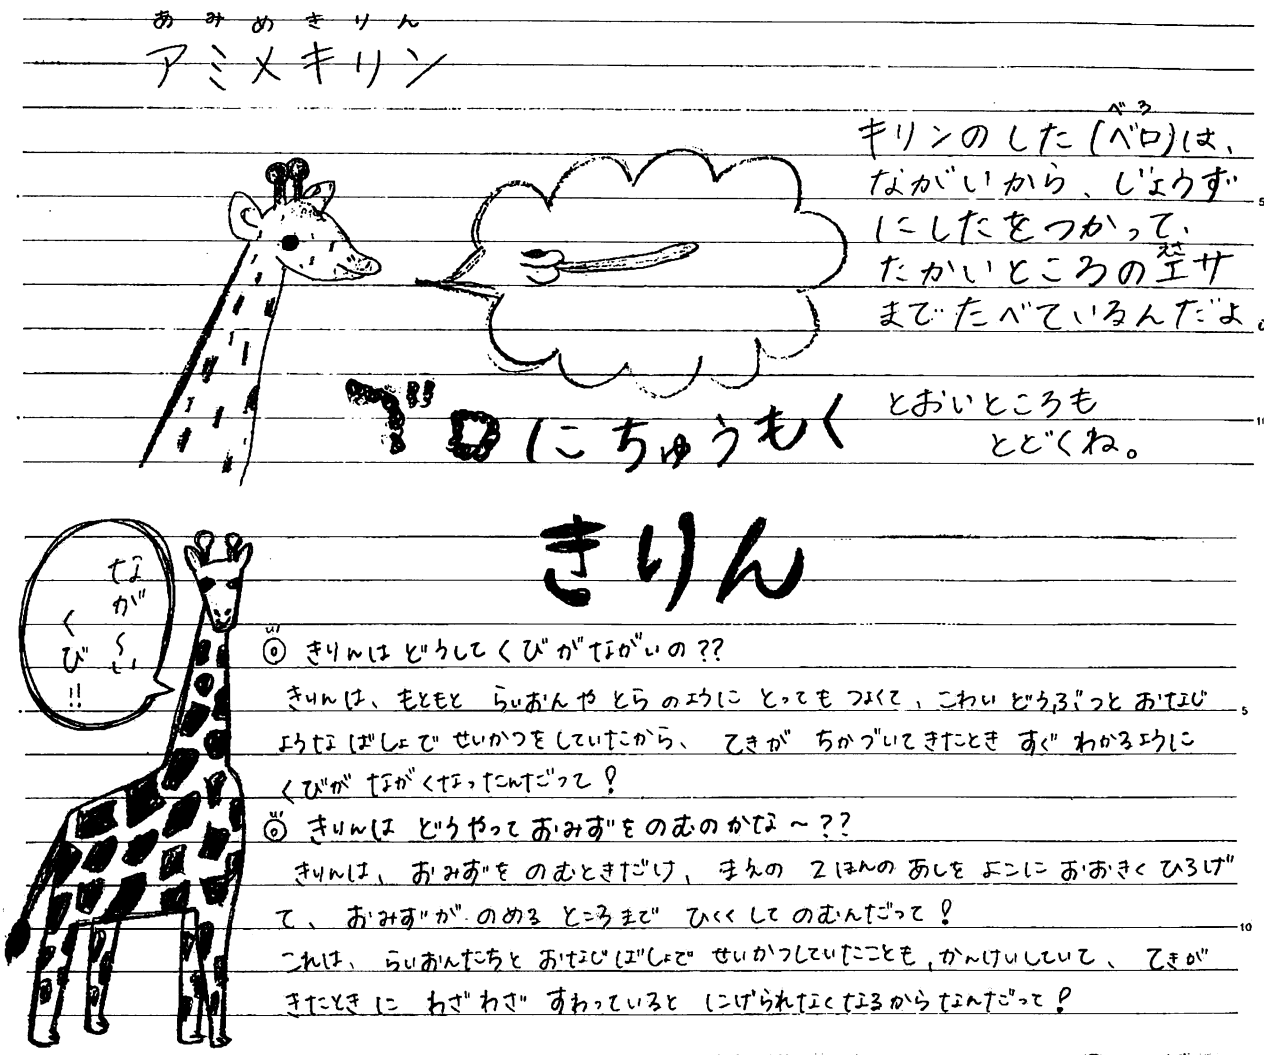 あみめきりん
アミメキリン
べろ
キリンのした(ベロ)は、
ながいから、じょうず
にしたをつかって、
えさ
たかいところのエサ
までたべているんだよ
とおいところも
とどくね。
ベロにちゅうもく
きりん
なが〜い
くび!!
◎ きりんは どうして くびが ながいの??
きりんは、もともと らいおんや とらのように とっても つよくて、こわい どうぶつと おなじ
ような ばしょで せいかつを していたから、 てきが ちかづいて きたとき すぐ わかるように
くびが ながくなったんだって!
◎ きりんは どうやって おみずを のむのかな〜??
きりんは、おみずを のむときだけ、まえの 2ほんの あしを よこに おおきく ひろげ
て、おみずが のめる ところまで ひくくして のむんだって!
これは、らいおんたちと おなじばしょで せいかつしていたことも、かんけいしていて、てきが
きたときに わざわざ すわっていると にげられなくなるからなんだって!